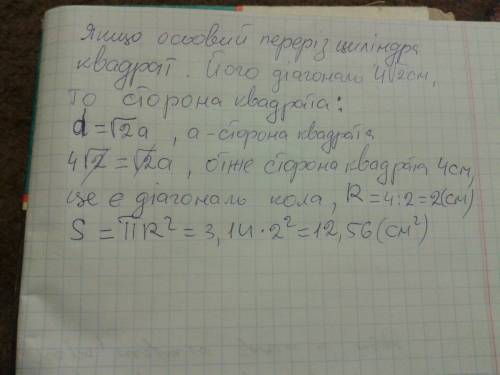 Якщо осьовий переріз циліндра
квадрат. Його діагональ 4√2см,
то сторона квадрата:
d=√2a , a-сторона квадрата
4√2=√2a , отже сторона квадрата 4см,
це є діагональ кола, R=4:2=2(см)
S=ПR²=3,14·2²=12,56(см²)